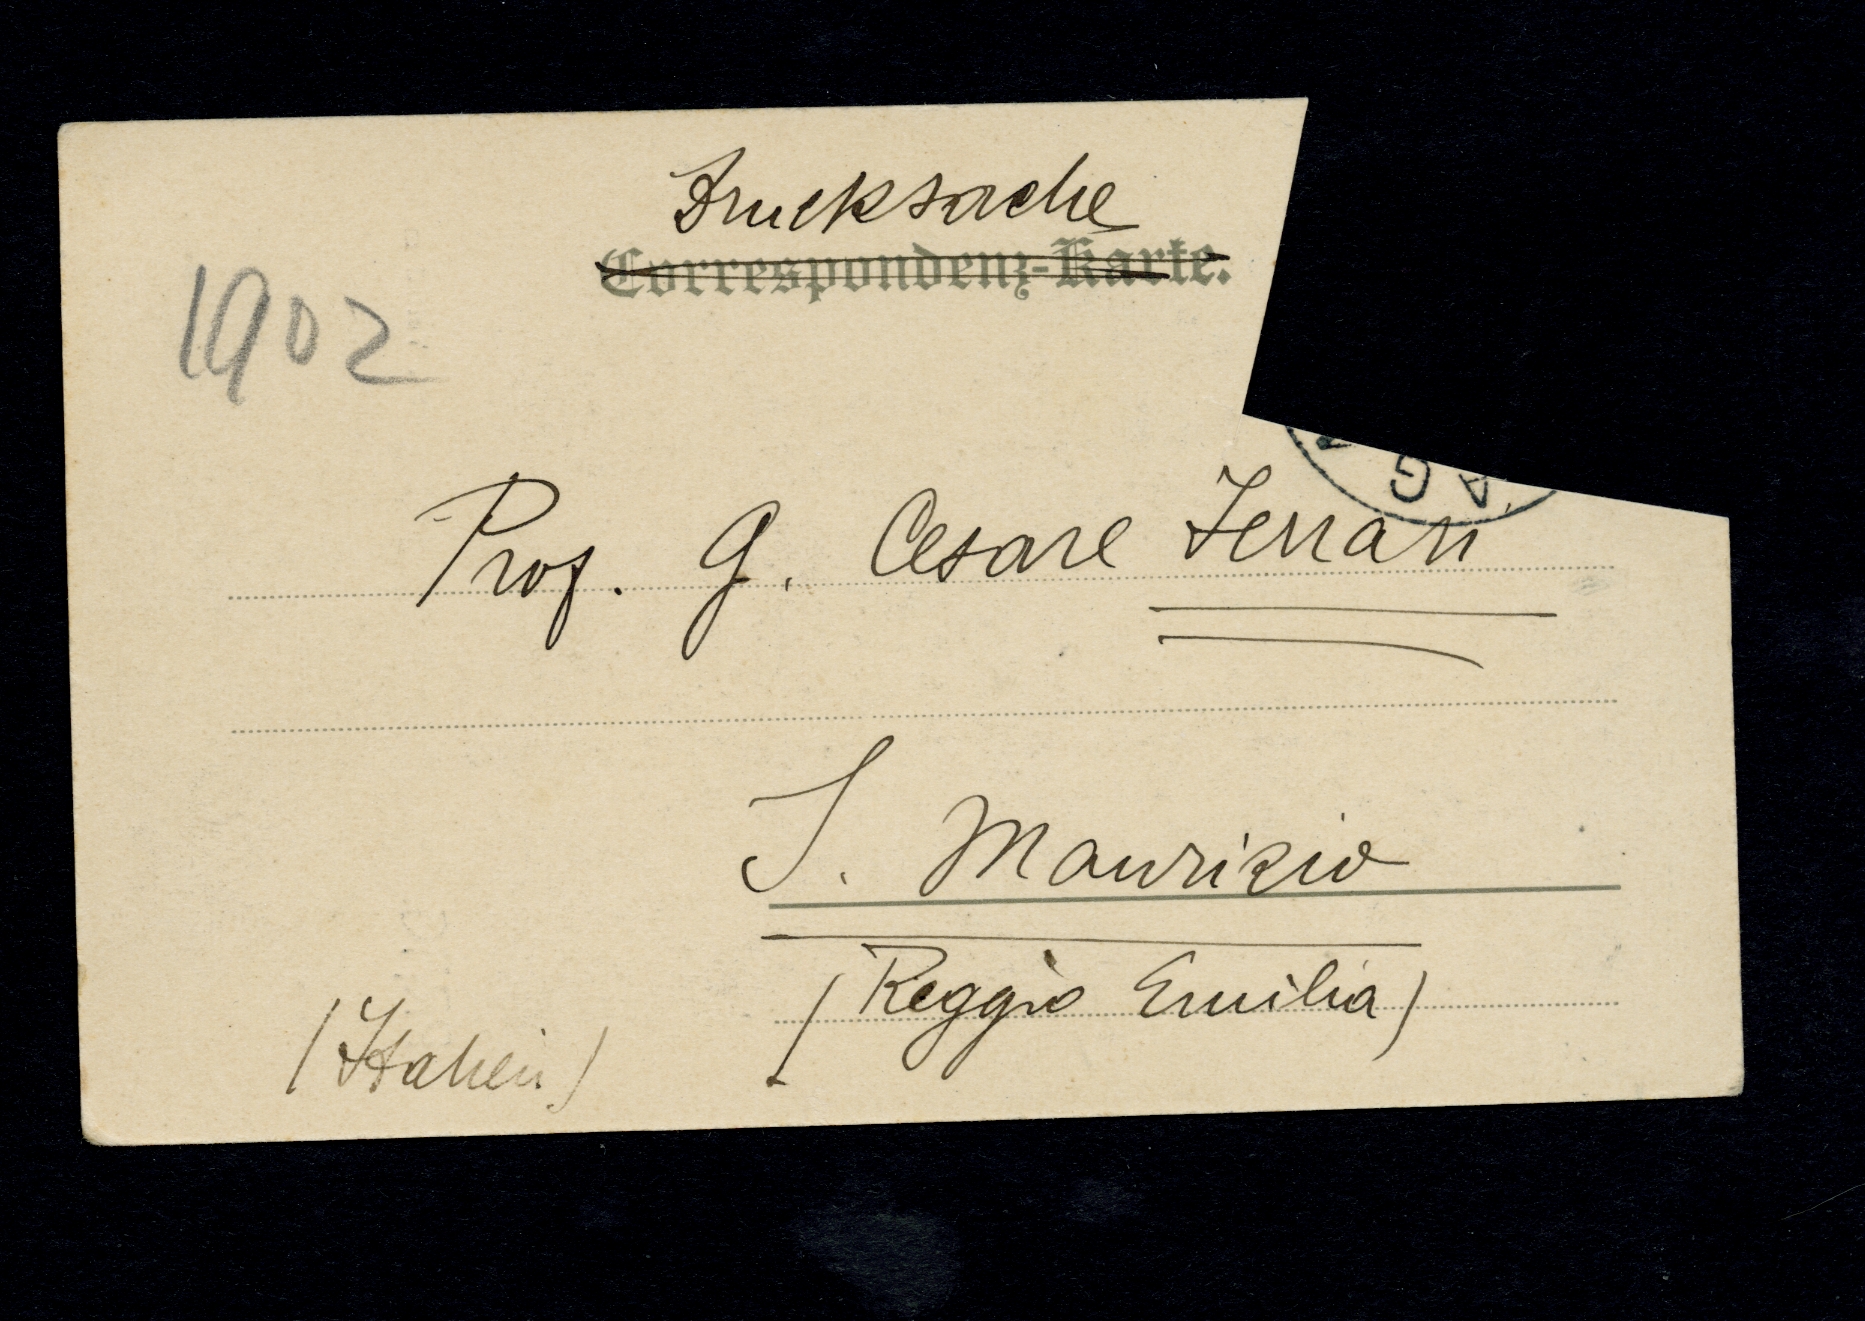 Drucksache
Correspondenz-Karte.
1902
Prof. G. Cesare Ferrari
S. Maurizio
(Reggio Emilia)
(Italien)